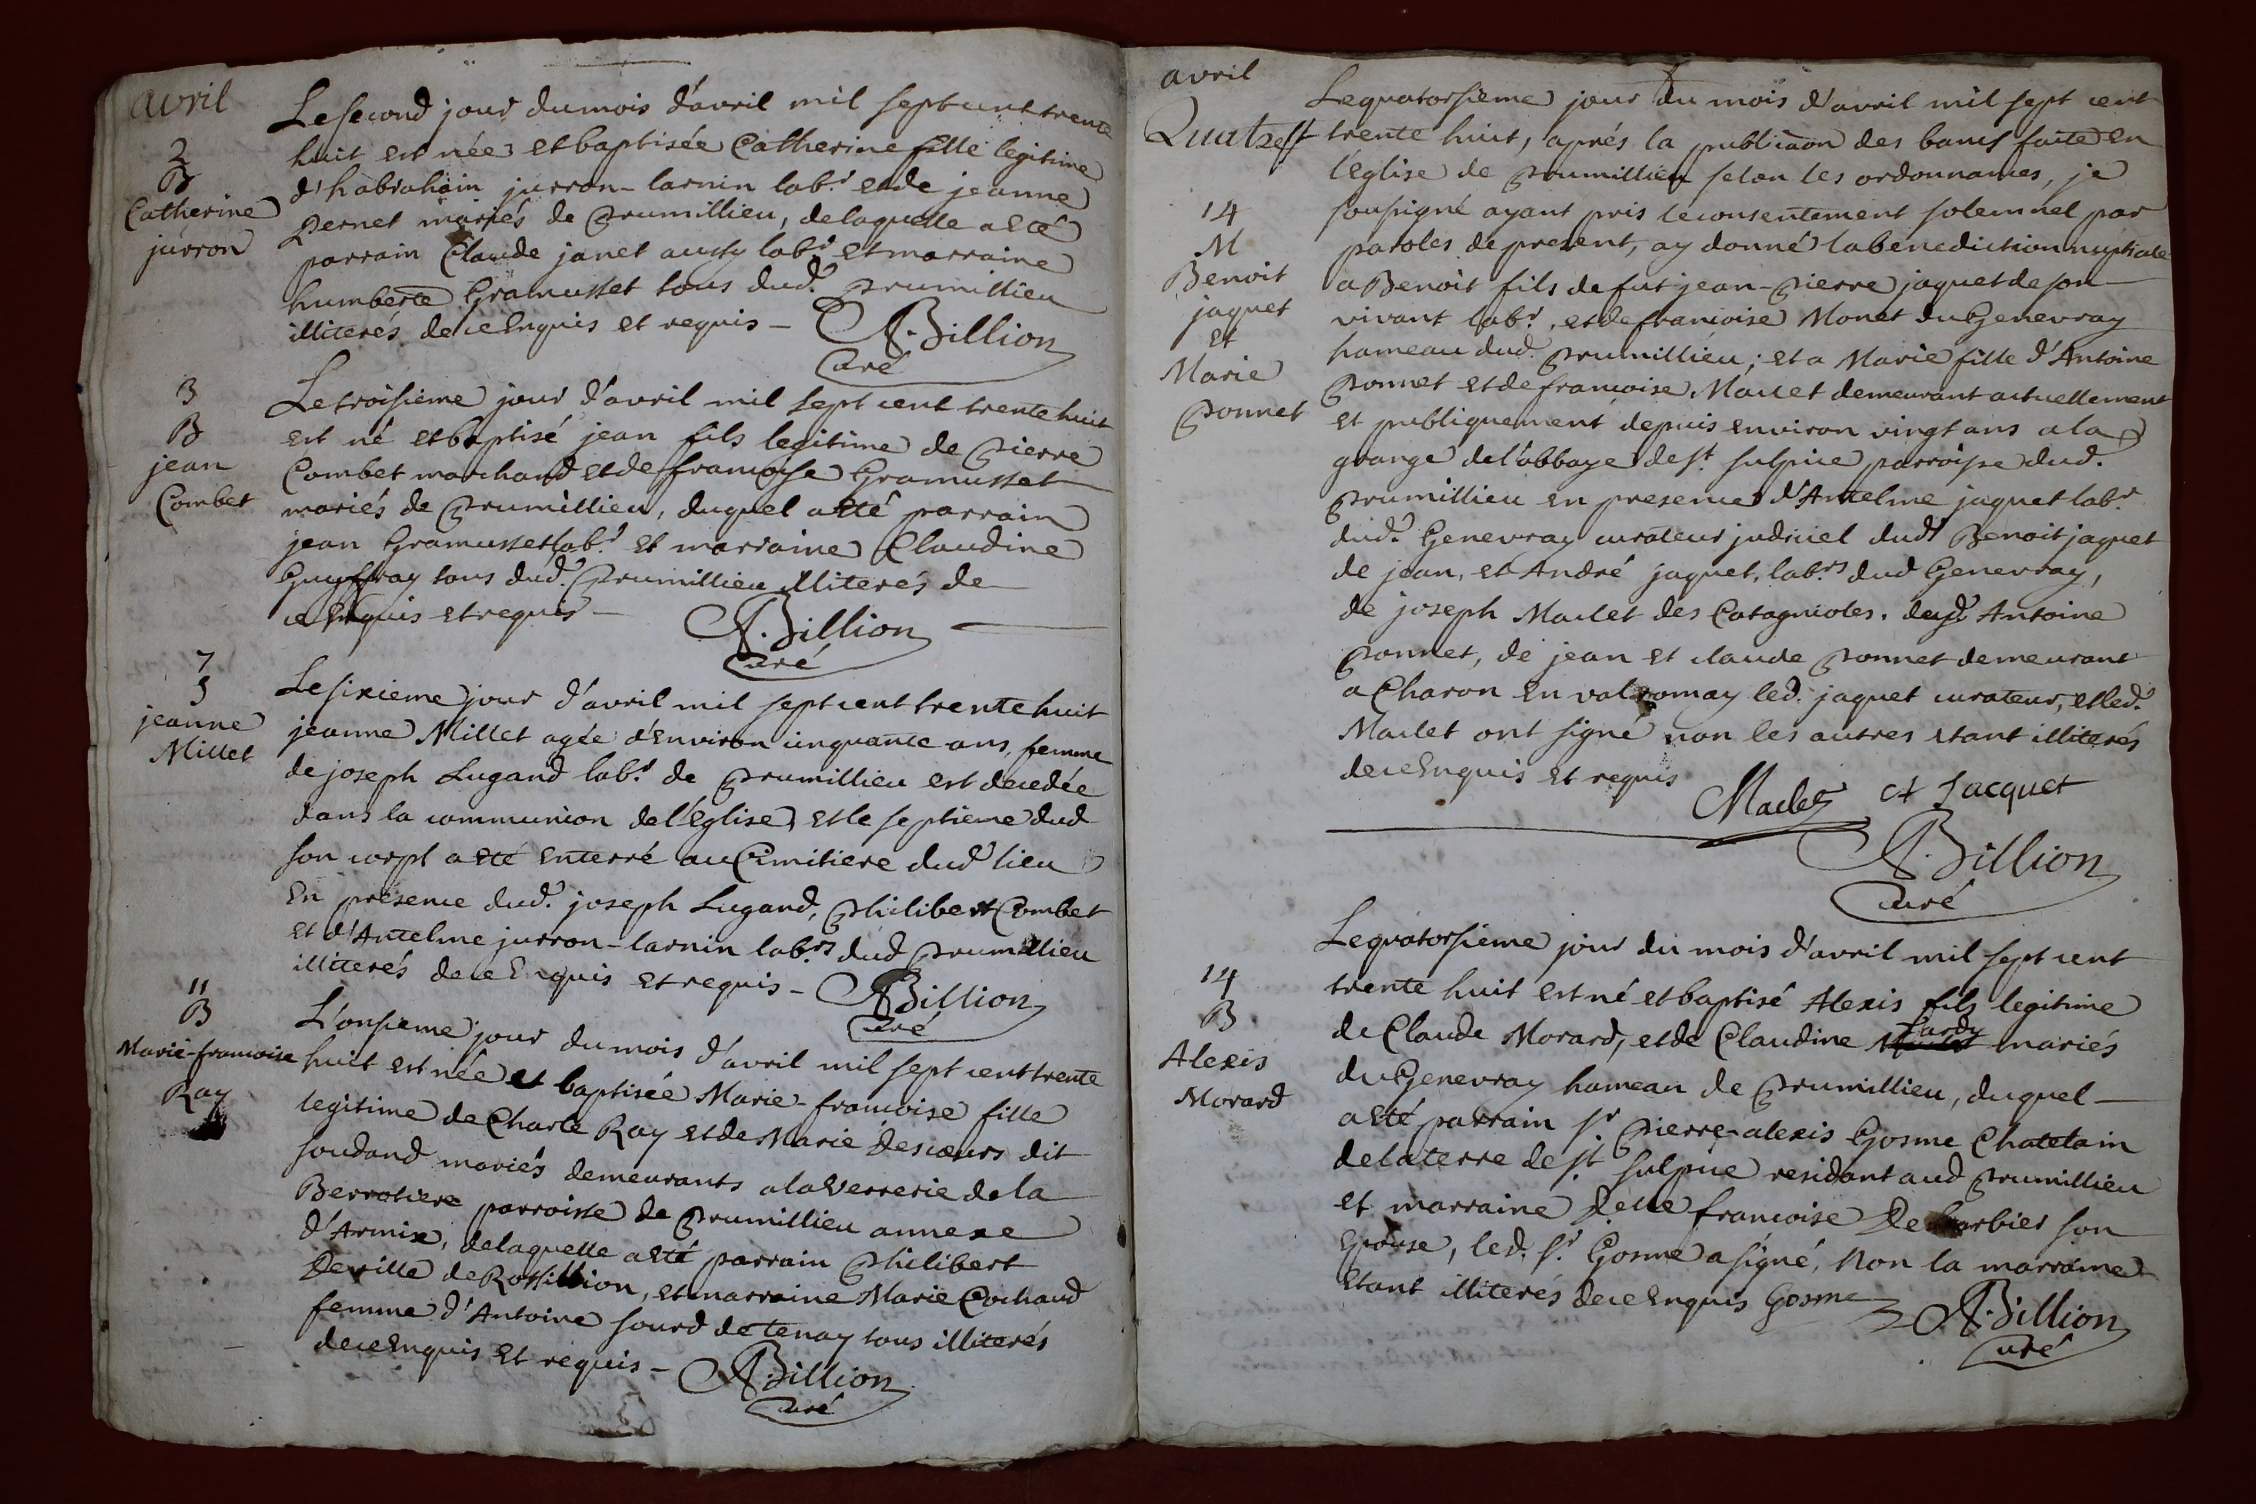 avril
2
B
Catherine
jurron
Le second jour du mois d'avril mil sept cent trente
huit est née et baptisée Catherine fille legitime
d'habraham jurron-larnin lab.r et de jeanne
Pernet mariés de Prumillieu, de laquelle a eté
parrain Claude janet aussy lab.r et marraine
humberte Gramusset tous dud. Prumillieu
illiterés de ce Enquis et requis - A. Billion
Curé
3
B
jean
Combet
Le troisieme jour d'avril mil sept cent trente huit
est né et baptisé jean fils legitime de Pierre
Combet marchand et de francoise Gramusset
mariés de Prumillieu, duquel a eté parrain
jean Gramusset lab.r et marraine Claudine
Guyffray tous dud. Prumillieu illiterés de
ce Enquis et requis -
A. Billion
Curé
7
S
jeanne
Millet
Le sixieme jour d'avril mil sept cent trente huit
jeanne Millet agée d'Environ cinquante ans, femme
de joseph Lugand lab.r de Prumillieu est decedée
dans la communion de l'Eglise, et le septieme dud
son corps a eté enterré au Cimitiere dud lieu
En presence dud. joseph Lugand, Philibert Combet
et d'Antelme jurron-larnin lab.rs dud Prumillieu
illiterés de ce Enquis et requis - A Billion
Curé
11
B
Marie-francoise
Ray
L'onsieme jour du mois d'avril mil sept cent trente
huit est née et baptisée Marie-francoise fille
legitime de Charle Ray et de Marie Descœurs dit
soudand mariés demeurants a la Verrerie de la
Berrotiere parroisse de Prumillieu annexe
d'Armix, de laquelle a eté parrain Philibert
Deville de Rossillion, et marraine Marie Cochaud
femme d'Antoine sourd de tenay tous illiterés
de ce Enquis et requis - A Billion
Curé
avril
14
M
Benoit
jaquet
et
Marie
Ponnet
Le quatorsieme jour du mois d'avril mil sept cent
trente huit, aprés la publicaon des bancs faite en
l'Eglise de Prumillieu selon les ordonnances, je
soussigné ayant pris le consentement solemnel par
paroles de present, ay donné la benediction nuptiale
a Benoit fils de fut jean-Pierre jaquet de son
vivant lab.r, et de francoise Monet du Genevray
hameau dud. Prumillieu; et a Marie fille d'Antoine
Ponnet et de francoise Maclet demeurant actuellement
et publiquement depuis environ vingt ans a la
grange de l'abbaye de st. sulpice parroisse dud.
Prumillieu en presence d'Antelme jaquet lab.r
dud. Genevray curateur judiciel dudt Benoit jaquet
de jean, et André jaquet, lab.rs dud Genevray,
de joseph Maclet des Catagnoles. dud. Antoine
Ponnet, de jean et claude Ponnet demeurant
a Charon en valromay led. jaquet curateur, et led.
Maclet ont signé non les autres etant illiterés
de ce Enquis et requis
Maclet A Jacquet
A. Billion
Curé
14
B
Alexis
Morard
Le quatorsieme jour du mois d'avril mil sept cent
trente huit est né et baptisé Alexis fils legitime
de Claude Morard, et de Claudine tardy mariés
du Genevray hameau de Prumillieu, duquel
a eté parrain sr Pierre-alexis Gosme Chatelain
de la terre de st. sulpice residant aud Prumillieu
et marraine Delle francoise De barbier son
Epouse, led. sr. Gosme a signé, Non la marraine
Etant illiterés de ce Enquis Gosme
A. Billion
Curé